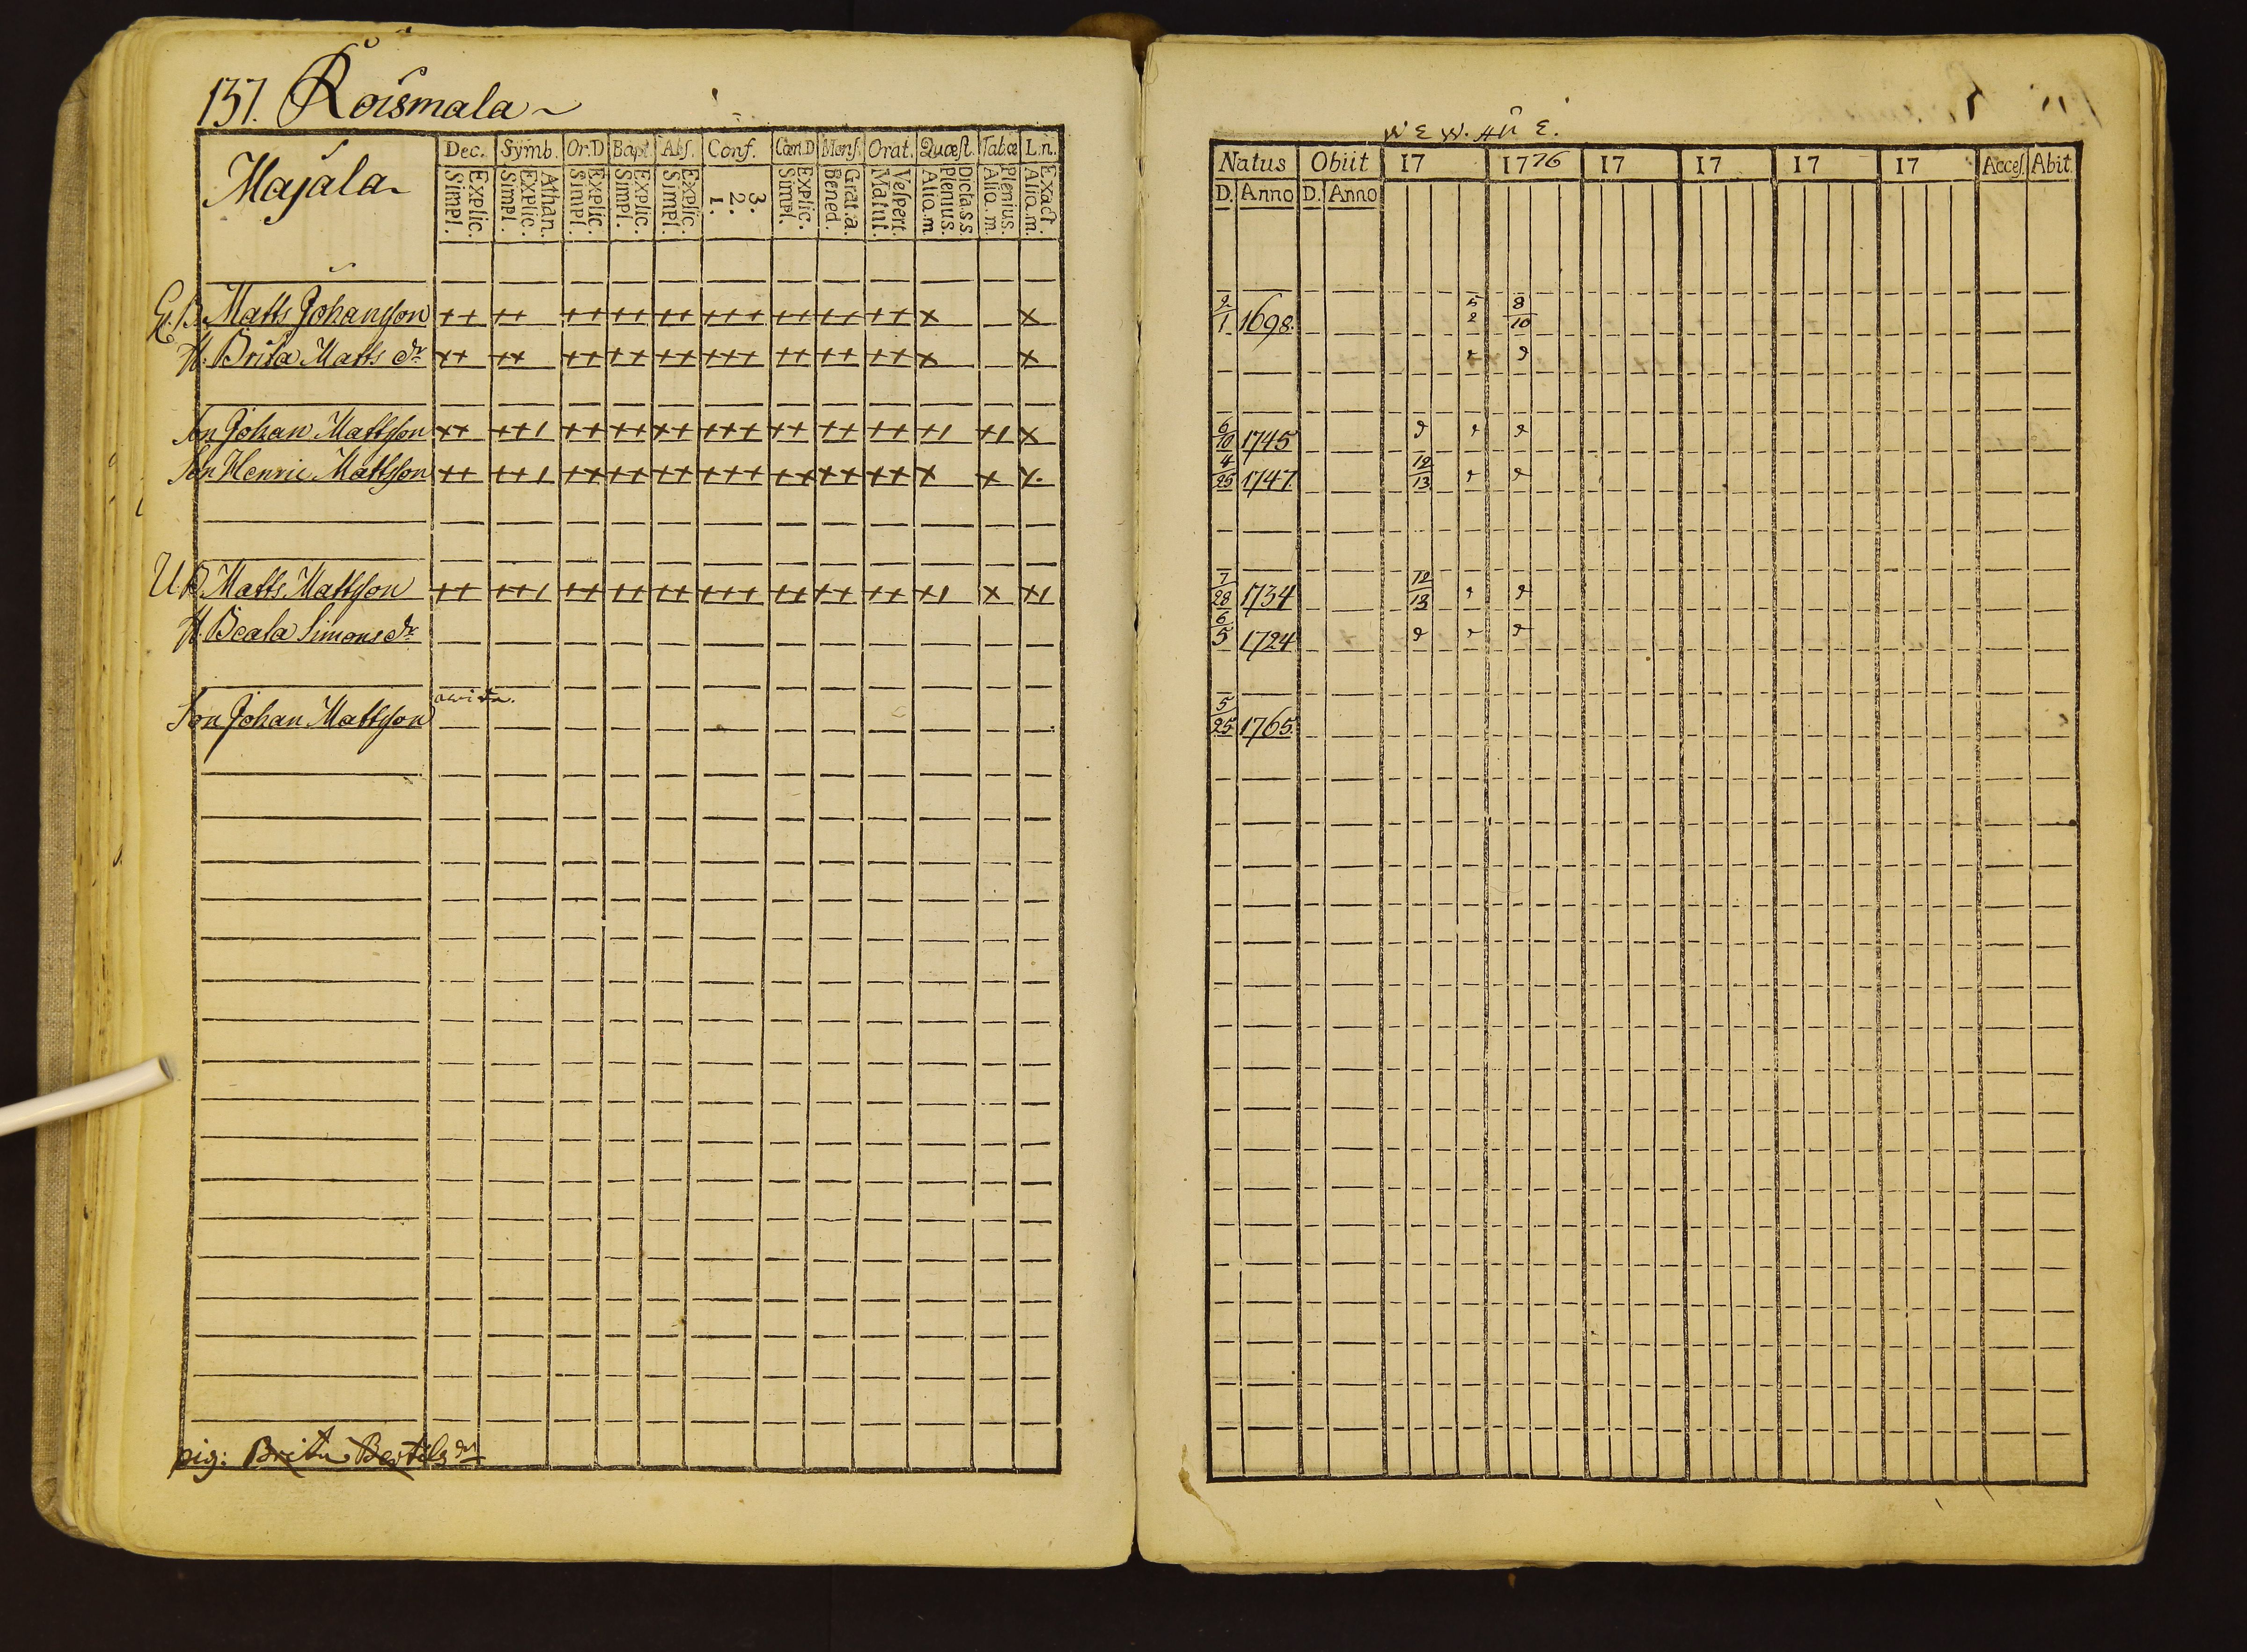 137. Roismala
Majala
Dec. Symb. Or.D Bapt. Abs. Conf. Cœn.D Mens. Orat. Quæst. Tab.œ L.n.
Simpl. Explic. Simpl. Explic. Athan. Simpl. Explic. Simpl. Explic. Simpl. Explic. 1. 2. 3. Simpl. Explic. Bened. Grat.a. Matut. Vespert. Aliq.m Plenius. Dicta.s.s Aliq.m. Plenius. Aliq.m. Exact.
G.B. Matts Johansson ++ ++ ++ ++ ++ +++ ++ ++ ++ x x
H. Brita Matts dr ++ ++ ++ ++ ++ +++ ++ ++ ++ x x
Son Johan Mattsson
Son Henric Mattsson
U.B. Matts Mattsson
H. Beata Simons dr
Son Johan Mattsson
pig: Brita Bertels dr
Natus Obiit 17 1776 17 17 17 17 Acces. Abit.
D. Anno D. Anno
2/1 1698. 5 2 8/10
6/10 1745
4/25 1747. 12/13
7/28 1734 12/13
6/5 1724
5/25 1765.